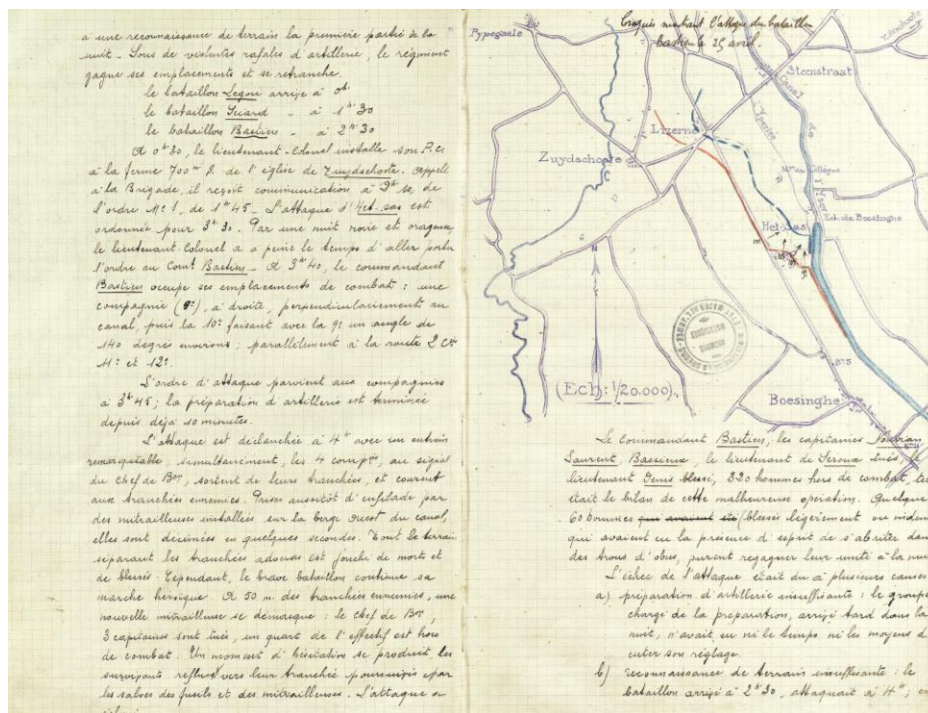 a une reconnaissance de terrain la première partie de la
nuit – Sous de violentes rafales d'artillerie, le régiment
gagne ses emplacements et se retranche.
le bataillon Legoüé arrive à 0h
le bataillon Sicard – à 1h 30
le bataillon Bastien – à 2h 30
A 0h 30, le lieutenant-Colonel installe son P.C.
à la ferme 700m S. de l'église de Zuydschoote. Appelé
à la Brigade, il reçoit communication à de
l'ordre No 1, de 1h 45 – L'attaque d'Het-sas est
ordonnée pour 3h 30. Par une nuit noire et orageuse,
le lieutenant-Colonel a à peine le temps d'aller porter
l'ordre au Comt Bastien – A 3h 40, le commandant
Bastien occupe ses emplacements de combat : une
compagnie (9e), à droite, perpendiculairement au
canal, puis la 10e faisant avec la 9e un angle de
140 degrés environ ; parallèlement à la route 2 Cies
11e et 12e.
L'ordre d'attaque parvient aux compagnies
à 3h 45 ; la préparation d'artillerie est terminée
depuis déjà 10 minutes.
L'attaque est déclanchée à 4h avec un entrain
remarquable, simultanément, les 4 compies, au signal
du chef de Bon, sortent de leurs tranchées, et courent
aux tranchées ennemies. Prises aussitôt d'enfilade par
des mitrailleuses installées sur la berge Ouest du canal,
elles sont décimées en quelques secondes. Tout le terrain
séparant les tranchées adverses est jonché de morts et
de blessés. Cependant, le brave bataillon continue sa
marche héroïque. A 50 m. des tranchées ennemies, une
nouvelle mitrailleuse se démasque : le chef de Bon,
3 capitaines sont tués, un quart de l'effectif est hors
de combat. Un moment d'hésitation se produit, les
survivants refluent vers leur tranchée poursuivis par
les salves des fusils et des mitrailleuses. L'attaque a
Croquis montrant l'attaque du bataillon
Bastien le 25 avril.
Pypegaale
Steenstraat
Canal
Yperlée
Lizerne
Zuydschoote
de
l'Yser
Het-Sas
Ecl. de Boesinghe
N
(Ech: 1/20.000).
Boesinghe
Le Commandant Bastien, les capitaines Nouvian
Laurent, Bassieux, le lieutenant de Seroux tués, le
lieutenant Denis blessé, 320 hommes hors de combat, tel
était le bilan de cette malheureuse opération. Quelque
60 hommes qui avaient été (blessés légèrement ou indem
qui avaient eu la présence d'esprit de s'abriter dan
des trous d'obus, purent regagner leur unité à la nui
L'échec de l'attaque était dû à plusieurs causes
a) préparation d'artillerie insuffisante : le groupe
chargé de la préparation, arrivé tard dans la
nuit, n'avait eu ni le temps, ni les moyens d
cuter son réglage.
b) reconnaissance de terrain insuffisante : le
bataillon arrivé à 2h 30, attaquait à 4h ; en